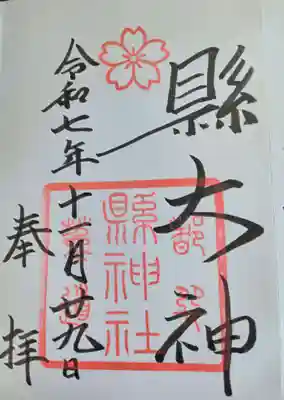 縣大神
令和七年十一月廿九日
奉拝
縣神社